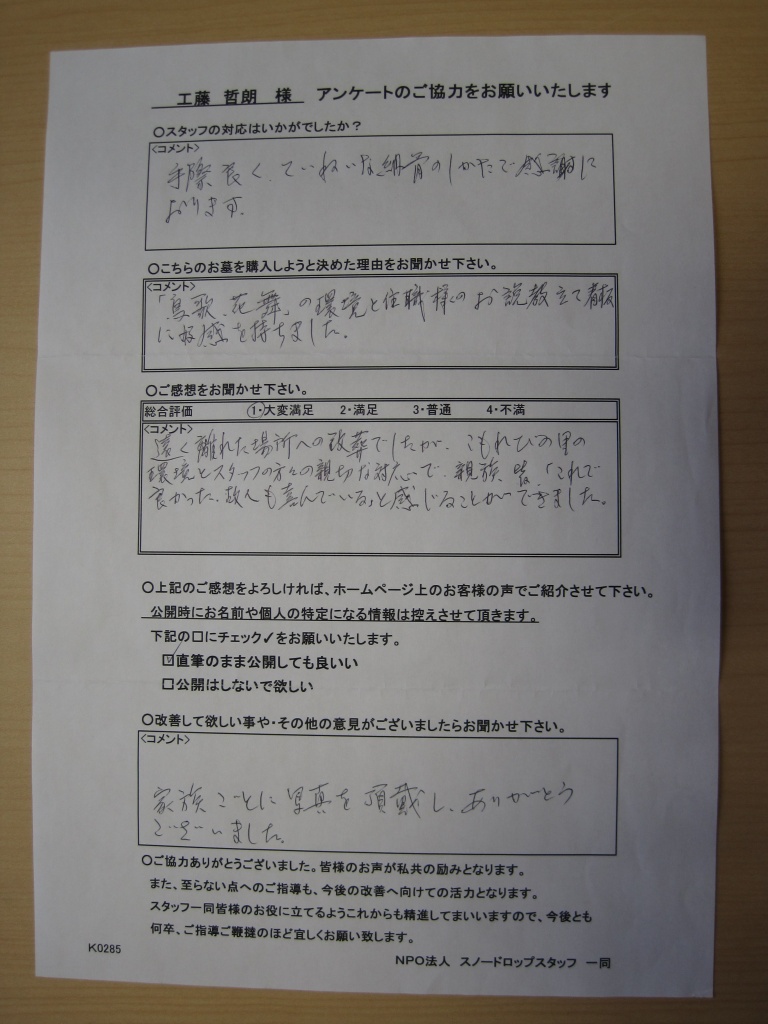 工藤 哲朗 様 アンケートのご協力をお願いいたします
〇スタッフの対応はいかがでしたか？
<コメント>
手際良く、ていねいな納骨のしかたで感謝に
おります。
〇こちらのお墓を購入しようと決めた理由をお聞かせ下さい。
<コメント>
「鳥歌、花舞」の環境と住職様のお説教立て看板
に好感を持ちました。
〇ご感想をお聞かせ下さい。
総合評価 ①・大変満足 2・満足 3・普通 4・不満
<コメント>
遠く離れた場所への改葬でしたが、こもれびの里の
環境とスタッフの方々の親切な対応で、親族、皆「これで
良かった、故人も喜んでいる」と感じることができました。
〇上記のご感想をよろしければ、ホームページ上のお客様の声でご紹介させて下さい。
公開時にお名前や個人の特定になる情報は控えさせて頂きます。
下記の□にチェック✓をお願いいたします。
☑直筆のまま公開しても良いい
□公開はしないで欲しい
〇改善して欲しい事や・その他の意見がございましたらお聞かせ下さい。
<コメント>
家族ごとに写真を頂戴し、ありがとう
ございました。
〇ご協力ありがとうございました。皆様のお声が私共の励みとなります。
また、至らない点へのご指導も、今後の改善へ向けての活力となります。
スタッフ一同皆様のお役に立てるようこれからも精進してまいいますので、今後とも
何卒、ご指導ご鞭撻のほど宜しくお願い致します。
K0285
NPO法人 スノードロップスタッフ 一同